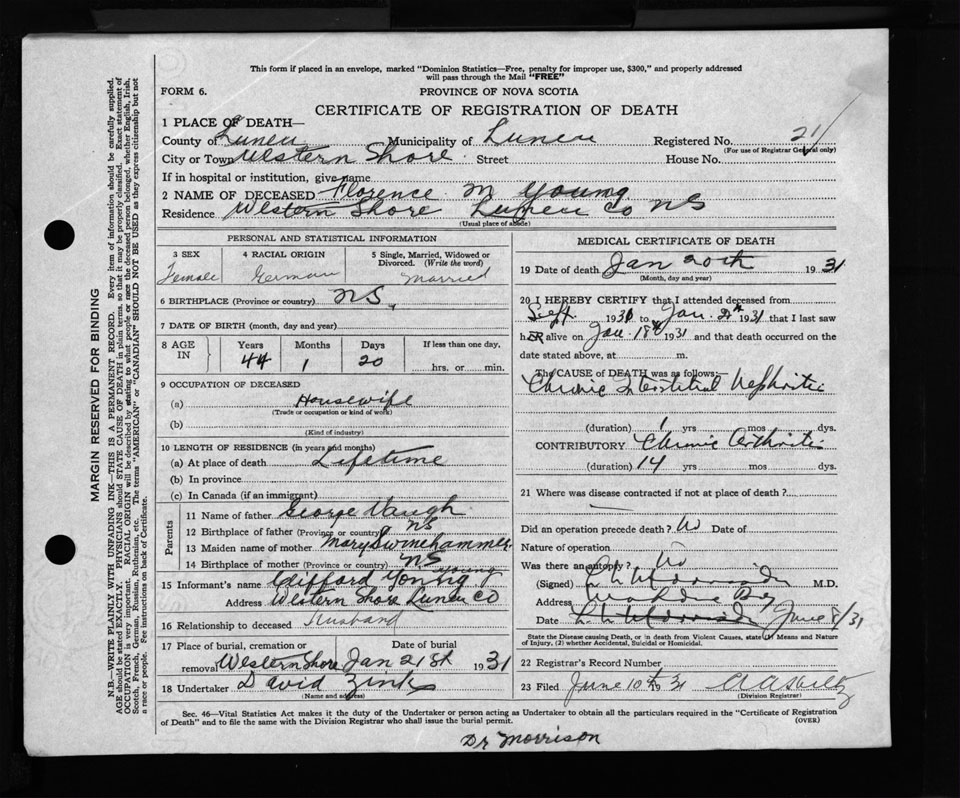 This form if placed in an envelope, marked "Dominion Statistics—Free, penalty for improper use, $300," and properly addressed
will pass through the Mail "FREE"
FORM 6.
PROVINCE OF NOVA SCOTIA
CERTIFICATE OF REGISTRATION OF DEATH
1 PLACE OF DEATH—
County of Lunen Municipality of Lunen Registered No. 21
(For use of Registrar General only)
City or Town Western Shore Street House No.
If in hospital or institution, give name
2 NAME OF DECEASED Florence M Young
Residence Western Shore Lunen Co NS
(Usual place of abode)
PERSONAL AND STATISTICAL INFORMATION
3 SEX 4 RACIAL ORIGIN 5 Single, Married, Widowed or
Divorced. (Write the word)
Female German Married
6 BIRTHPLACE (Province or country) NS.
7 DATE OF BIRTH (month, day and year)
8 AGE IN Years Months Days If less than one day,
44 1 20 hrs. or min.
9 OCCUPATION OF DECEASED
(a) Housewife
(Trade or occupation or kind of work)
(b)
(Kind of industry)
10 LENGTH OF RESIDENCE (in years and months)
(a) At place of death Lifetime
(b) In province
(c) In Canada (if an immigrant)
Parents
11 Name of father George Vaugh
12 Birthplace of father (Province or country) NS
13 Maiden name of mother Mary Swinehammer
14 Birthplace of mother (Province or country) NS
15 Informant's name Clifford Young Young
Address Western Shore Lunen Co
16 Relationship to deceased Husband
17 Place of burial, cremation or Date of burial
removal Western Shore Jan 21st 1931
18 Undertaker David Zink
(Name and address)
MEDICAL CERTIFICATE OF DEATH
19 Date of death Jan 20th 1931
(Month, day and year)
20 I HEREBY CERTIFY that I attended deceased from
Sept. 1930 to Jan. 1931 that I last saw
hER alive on Jan. 18th 1931 and that death occurred on the
date stated above, at m.
The CAUSE OF DEATH was as follows:—
Chronic Interstitial Nephritis
(duration) 1 yrs mos dys.
CONTRIBUTORY Chronic Arthritis
(duration) 14 yrs mos dys.
21 Where was disease contracted if not at place of death?
Did an operation precede death? No Date of
Nature of operation
Was there an autopsy? No
(Signed) Morrison M.D.
Address Mahone Bay
Date Morrison June 8/31
State the Disease causing Death, or in death from Violent Causes, state (1) Means and Nature
of Injury, (2) whether Accidental, Suicidal or Homicidal.
22 Registrar's Record Number
23 Filed June 10th 1931
(Division Registrar)
Sec. 46—Vital Statistics Act makes it the duty of the Undertaker or person acting as Undertaker to obtain all the particulars required in the "Certificate of Registration
of Death" and to file the same with the Division Registrar who shall issue the burial permit.
(OVER)
Dr Morrison
MARGIN RESERVED FOR BINDING
N.B.—WRITE PLAINLY WITH UNFADING INK—THIS IS A PERMANENT RECORD. Every item of information should be carefully supplied.
AGE should be stated EXACTLY. PHYSICIANS should STATE CAUSE OF DEATH in plain terms, so that it may be properly classified. Exact statement of
OCCUPATION is very important. RACIAL ORIGIN will be described by stating to what people or race the deceased person belonged, whether English, Irish,
Scotch, French, German, Russian, Ruthenian, etc. The terms "AMERICAN" or "CANADIAN" SHOULD NOT BE USED as they express citizenship but not
a race or people. See instructions on back of Certificate.